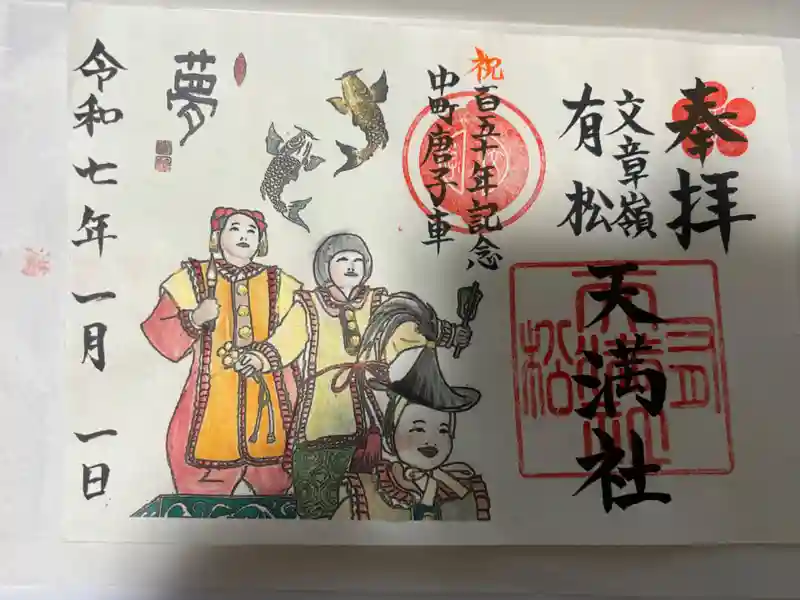 奉拝
文章嶺
有松
天満社
祝百五十年記念
中町唐子車
夢
令和七年一月一日